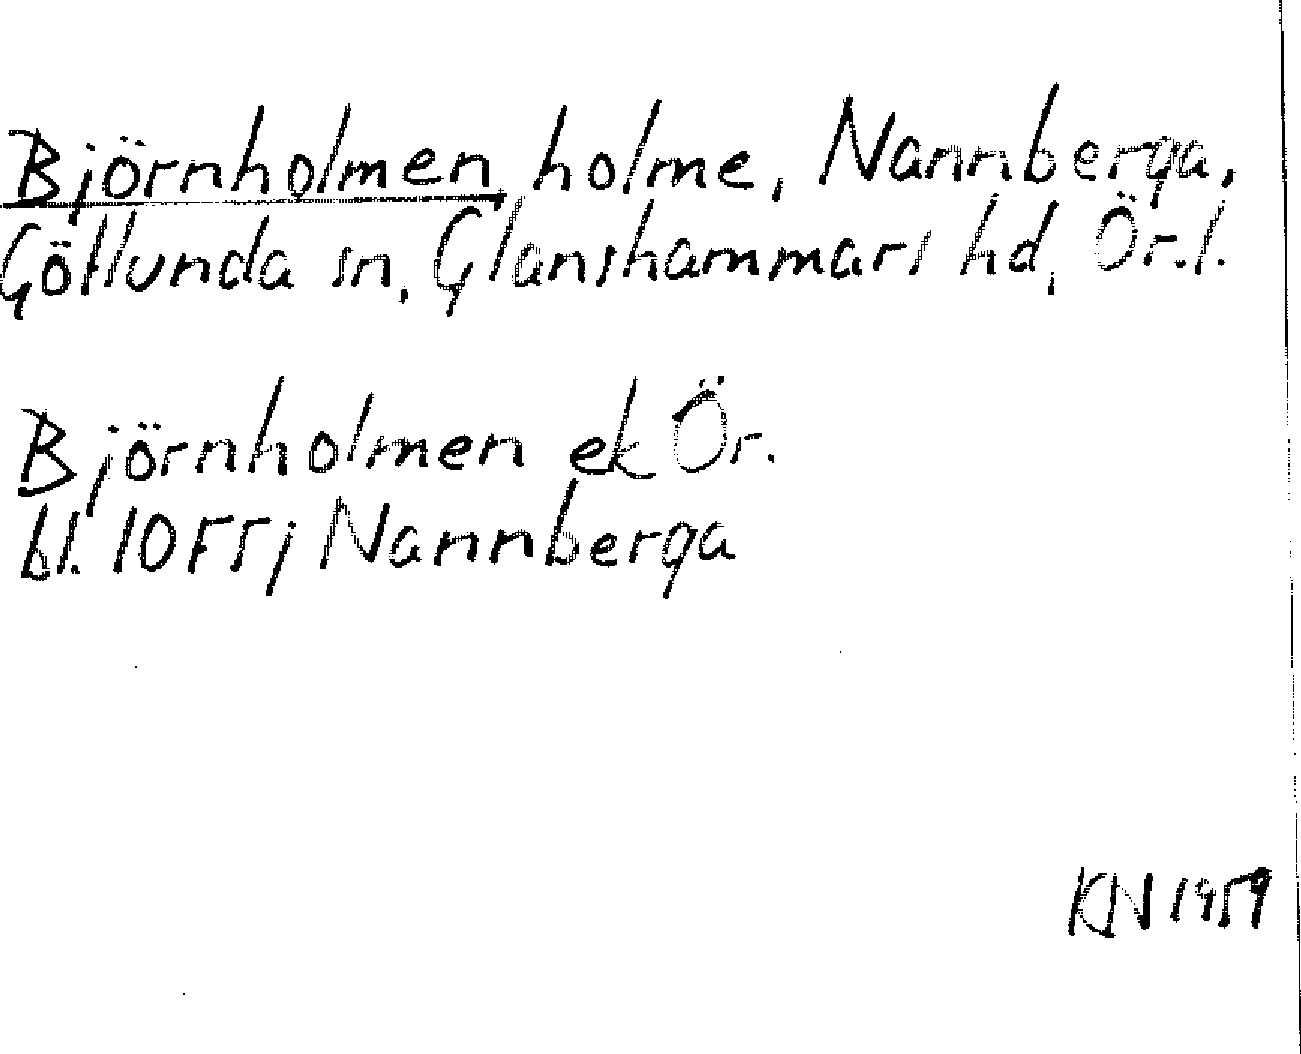 Björnholmen, holme, Nannberga,
Götlunda sn, Glanshammars hd, Ör.l.
Björnholmen ek Ör.
bl. 10F5j Nannberga
KJN 1959